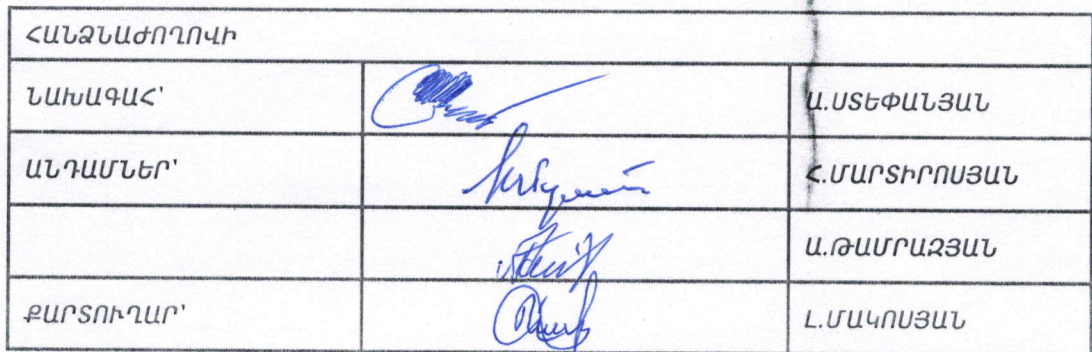 ՀԱՆՁՆԱԺՈՂՈՎԻ
ՆԱԽԱԳԱՀ՝ Ա.ՍՏԵՓԱՆՅԱՆ
ԱՆԴԱՄՆԵՐ՝ Հ.ՄԱՐՏԻՐՈՍՅԱՆ
Ա.ԹԱՄՐԱԶՅԱՆ
ՔԱՐՏՈՒՂԱՐ՝ Լ.ՄԱԿՈՍՅԱՆ